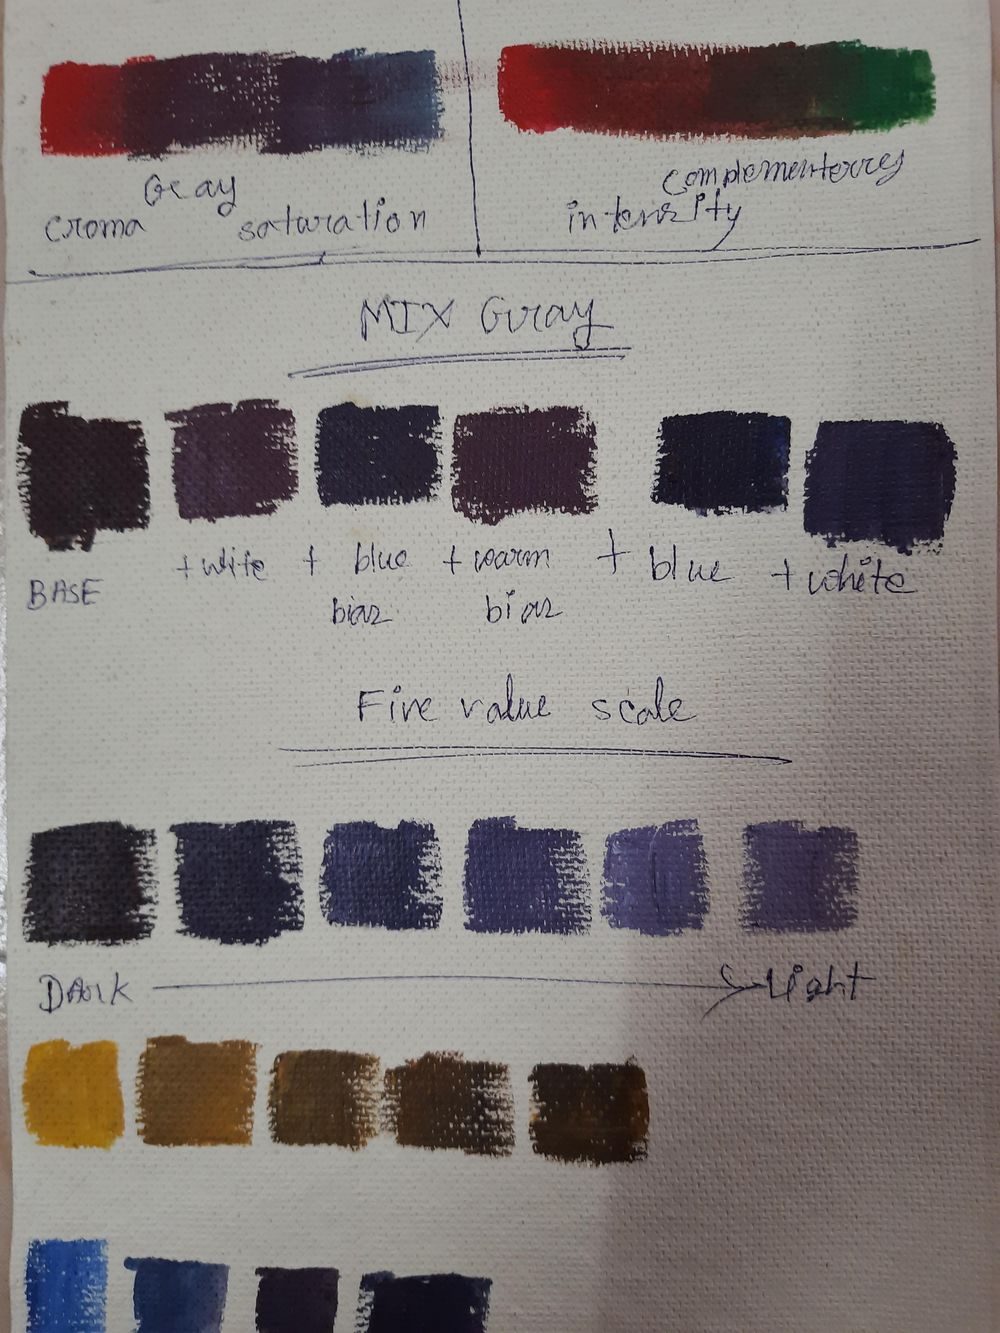 Gray
croma saturation
complementerry
intensity
MIX Gray
BASE +wite + blue bias +warm bias + blue +white
Five value scale
DArk light